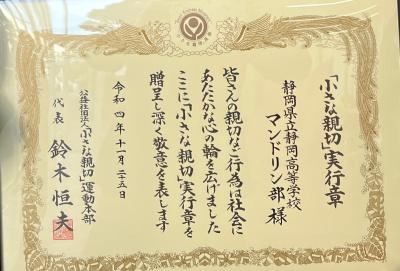 「小さな親切」実行章
静岡県立静岡高等学校
マンドリン部 様
皆さんの親切なご行為は社会に
あたたかな心の輪を広げました
ここに「小さな親切」実行章を
贈呈し深く敬意を表します
令和四年十一月二十五日
公益社団法人「小さな親切」運動本部
代表 鈴木恒夫